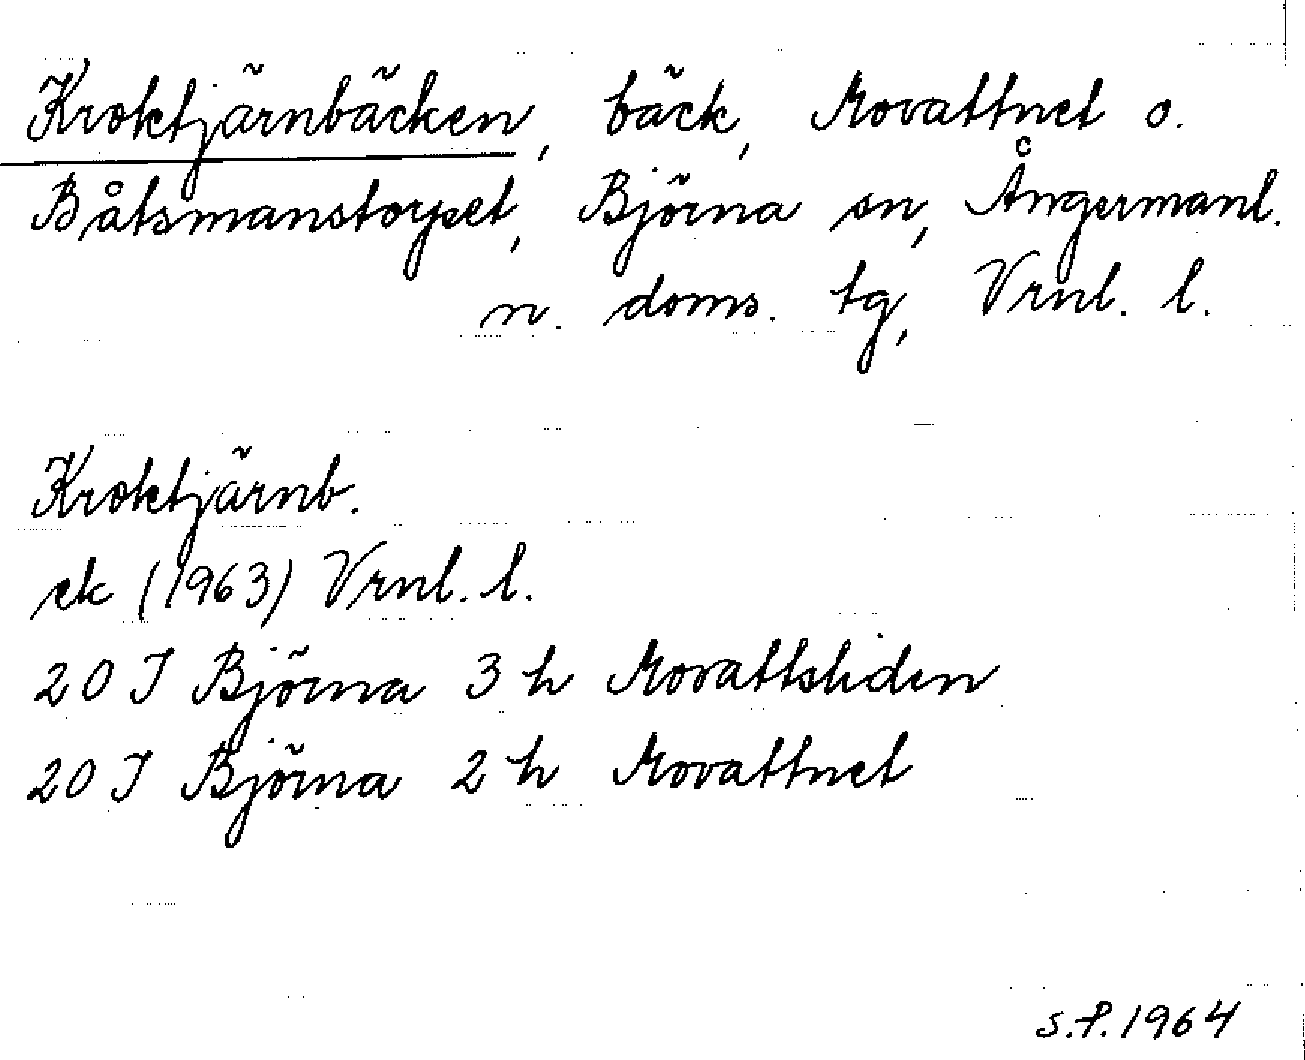 Kroktjärnbäcken, bäck, Movattnet o.
Båtsmanstorpet, Björna sn, Ångermanl.
n. doms. tg, Vrnl. l.
Kroktjärnb.
ek (1963) Vrnl. l.
20 I Björna 3 h Movattsliden
20 I Björna 2 h Movattnet
S.P. 1964